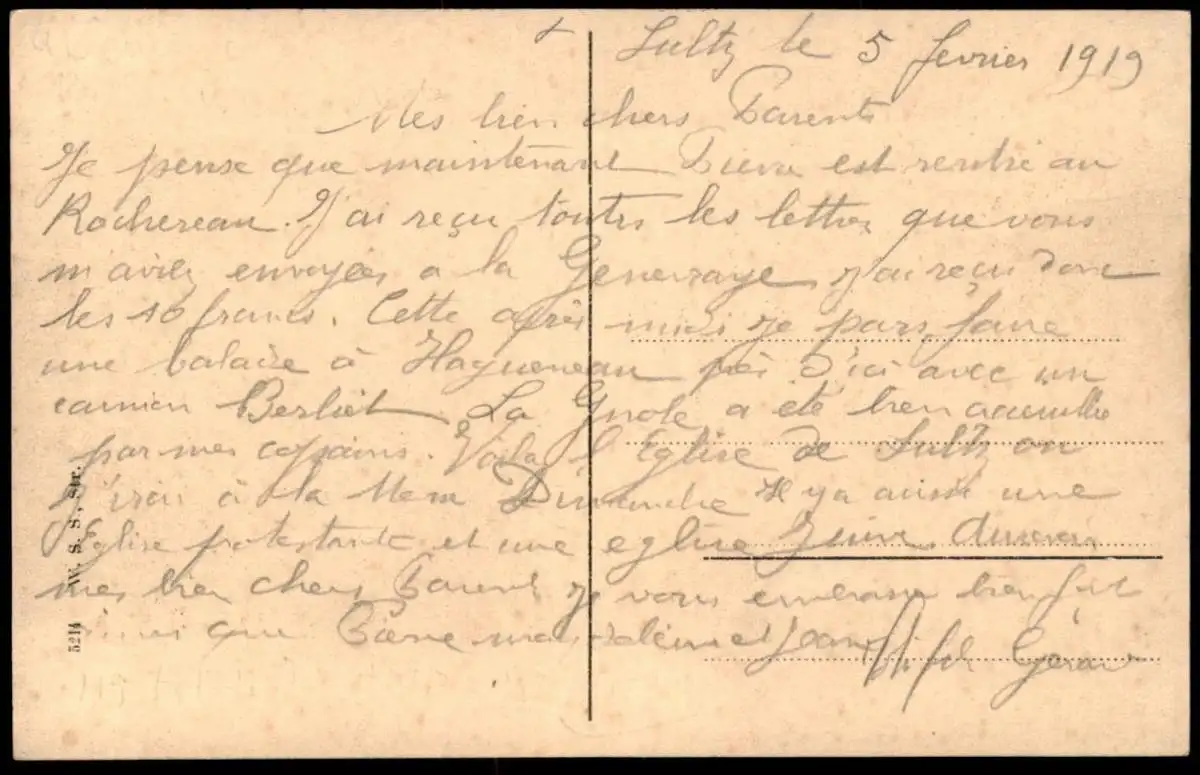 Sultz le 5 fevrier 1919
Mes bien chers Parents
Je pense que maintenant Pierre est rentré au
Rochereau. J'ai reçu toutes les lettres que vous
m'aviez envoyées a la Genevraye j'ai reçu donc
les 10 francs. Cette après midi je pars faire
une balade à Hagueneau près d'ici avec un
camion Berliet La Gnole a été bien accueillie
par mes copains. Voila l'Eglise de Sultz ou
j'irai à la Messe Dimanche Il y a aussi une
Eglise protestante et une eglise Juive.
mes bien chers Parents je vous embrasse bien fort
ainsi que Pierre et Jean Gérard
5214 W. S. S., Str.